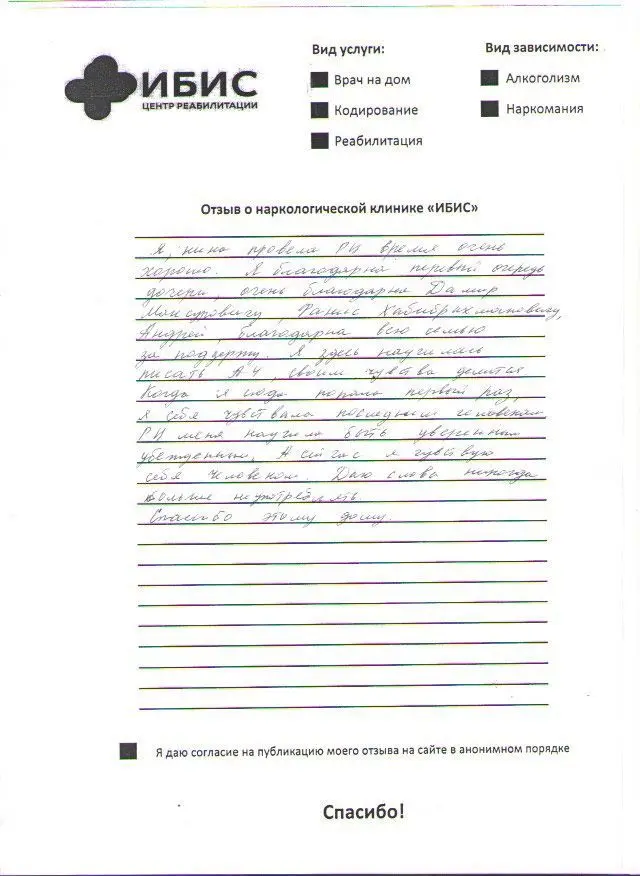 ИБИС
ЦЕНТР РЕАБИЛИТАЦИИ
Вид услуги:
Врач на дом
Кодирование
Реабилитация
Вид зависимости:
Алкоголизм
Наркомания
Отзыв о наркологической клинике «ИБИС»
Я, нина провела РЦ время очень
хорошо. Я благодарна первый очередь
дочери, очень благодарна Дамир
Мансуровичу,
Андрей, благодарна всю семью
за поддержку. Я здесь научилась
писать АЧ, своим чувства делится
Когда я сюда попала первый раз,
я себя чувствала последним человеком
РЦ меня научила быть уверенным
убежденным. А сейчас я чувствую
себя человеком. Даю слова никогда
больше не употреблять
Спасибо этому дому.
Я даю согласие на публикацию моего отзыва на сайте в анонимном порядке
Спасибо!